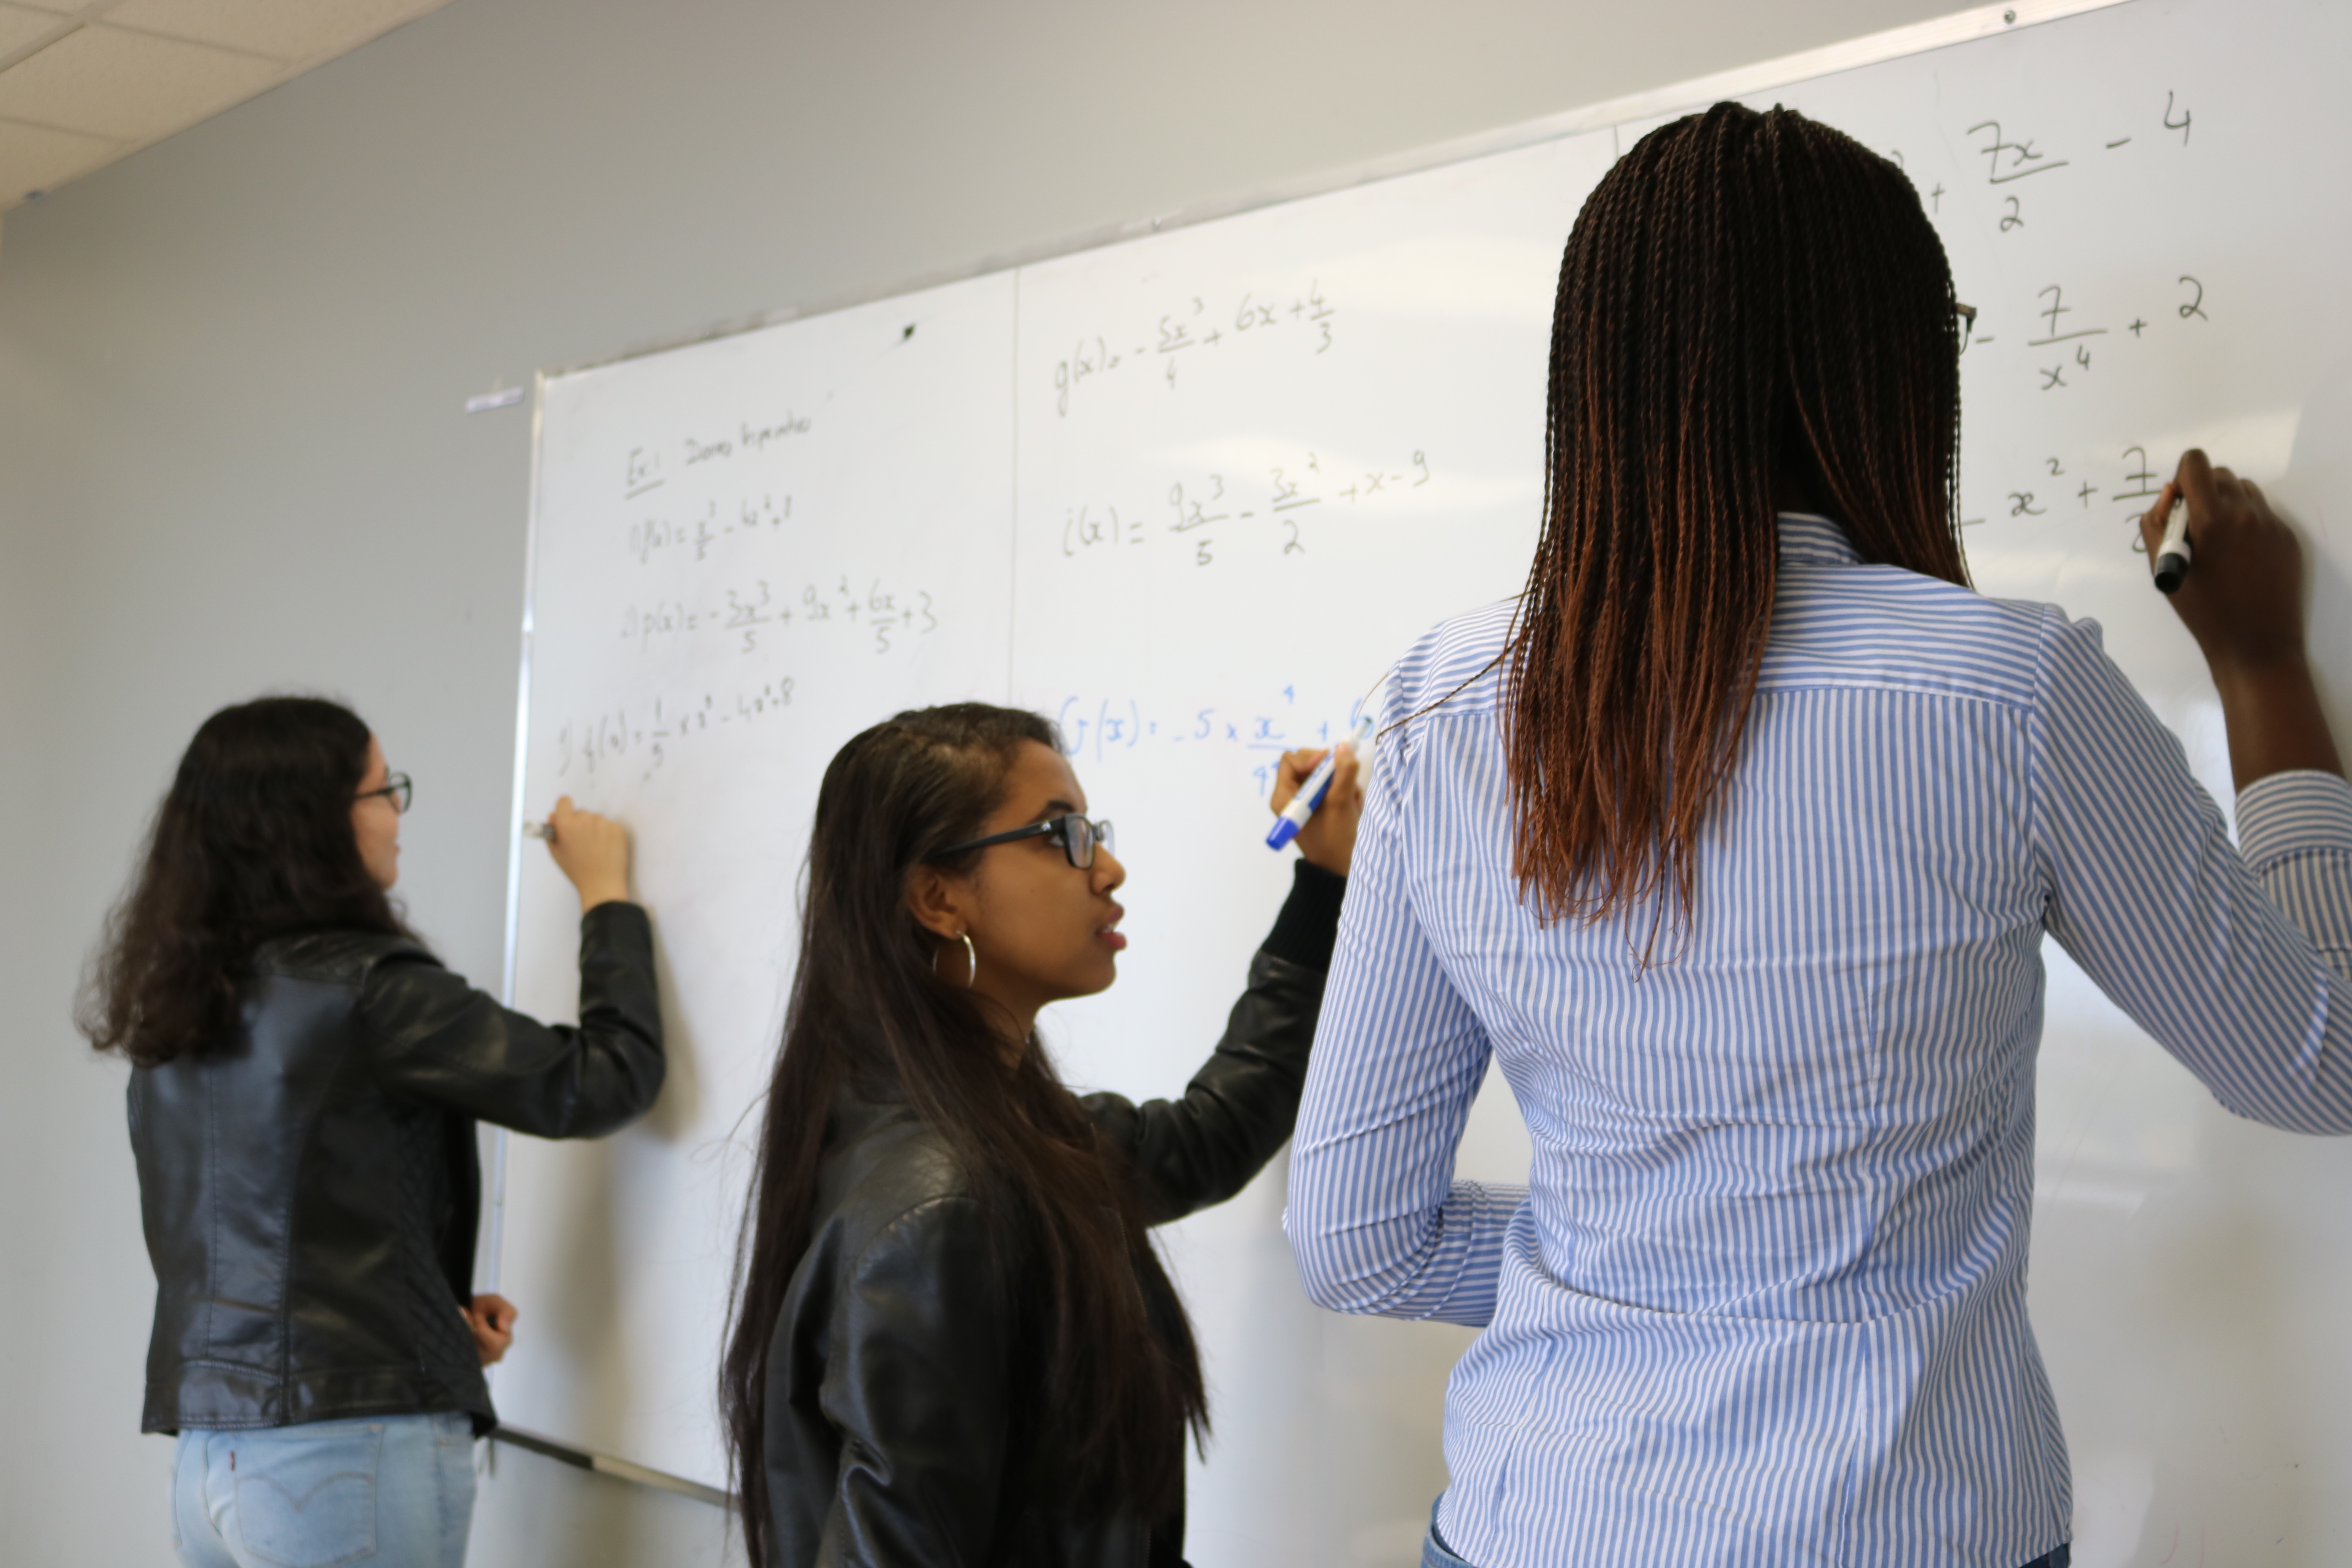 Ex 1
1) f(x) = x³/5 - 4x² + 8
2) p(x) = - 3x³/5 + 9x² + 6x/5 + 3
1) f(x) = 1/5 × x³ - 4x² + 8
g(x) = - 5x³/4 + 6x + 4/3
i(x) = 9x³/5 - 3x²/2 + x - 9
(x) = - 5 × x⁴/4 +
+ 7x/2 - 4
- 7/x⁴ + 2
- x² + 7/